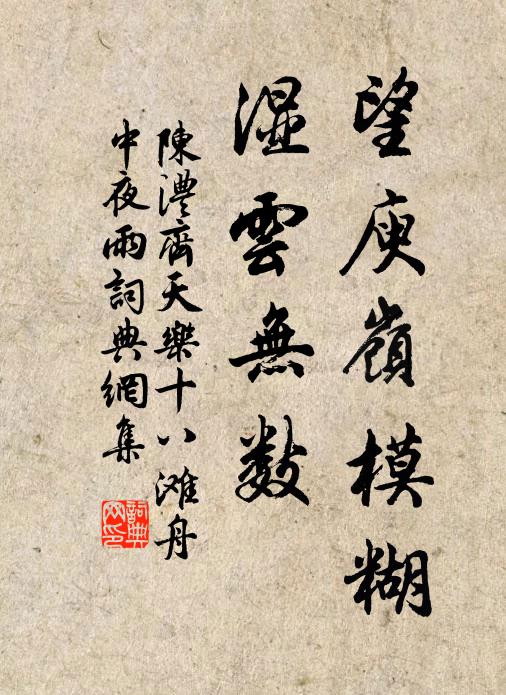 望庾嶺模糊
湿雲無數
陳澧齊天樂十八滩舟
中夜雨詞典網集
詞典
网印